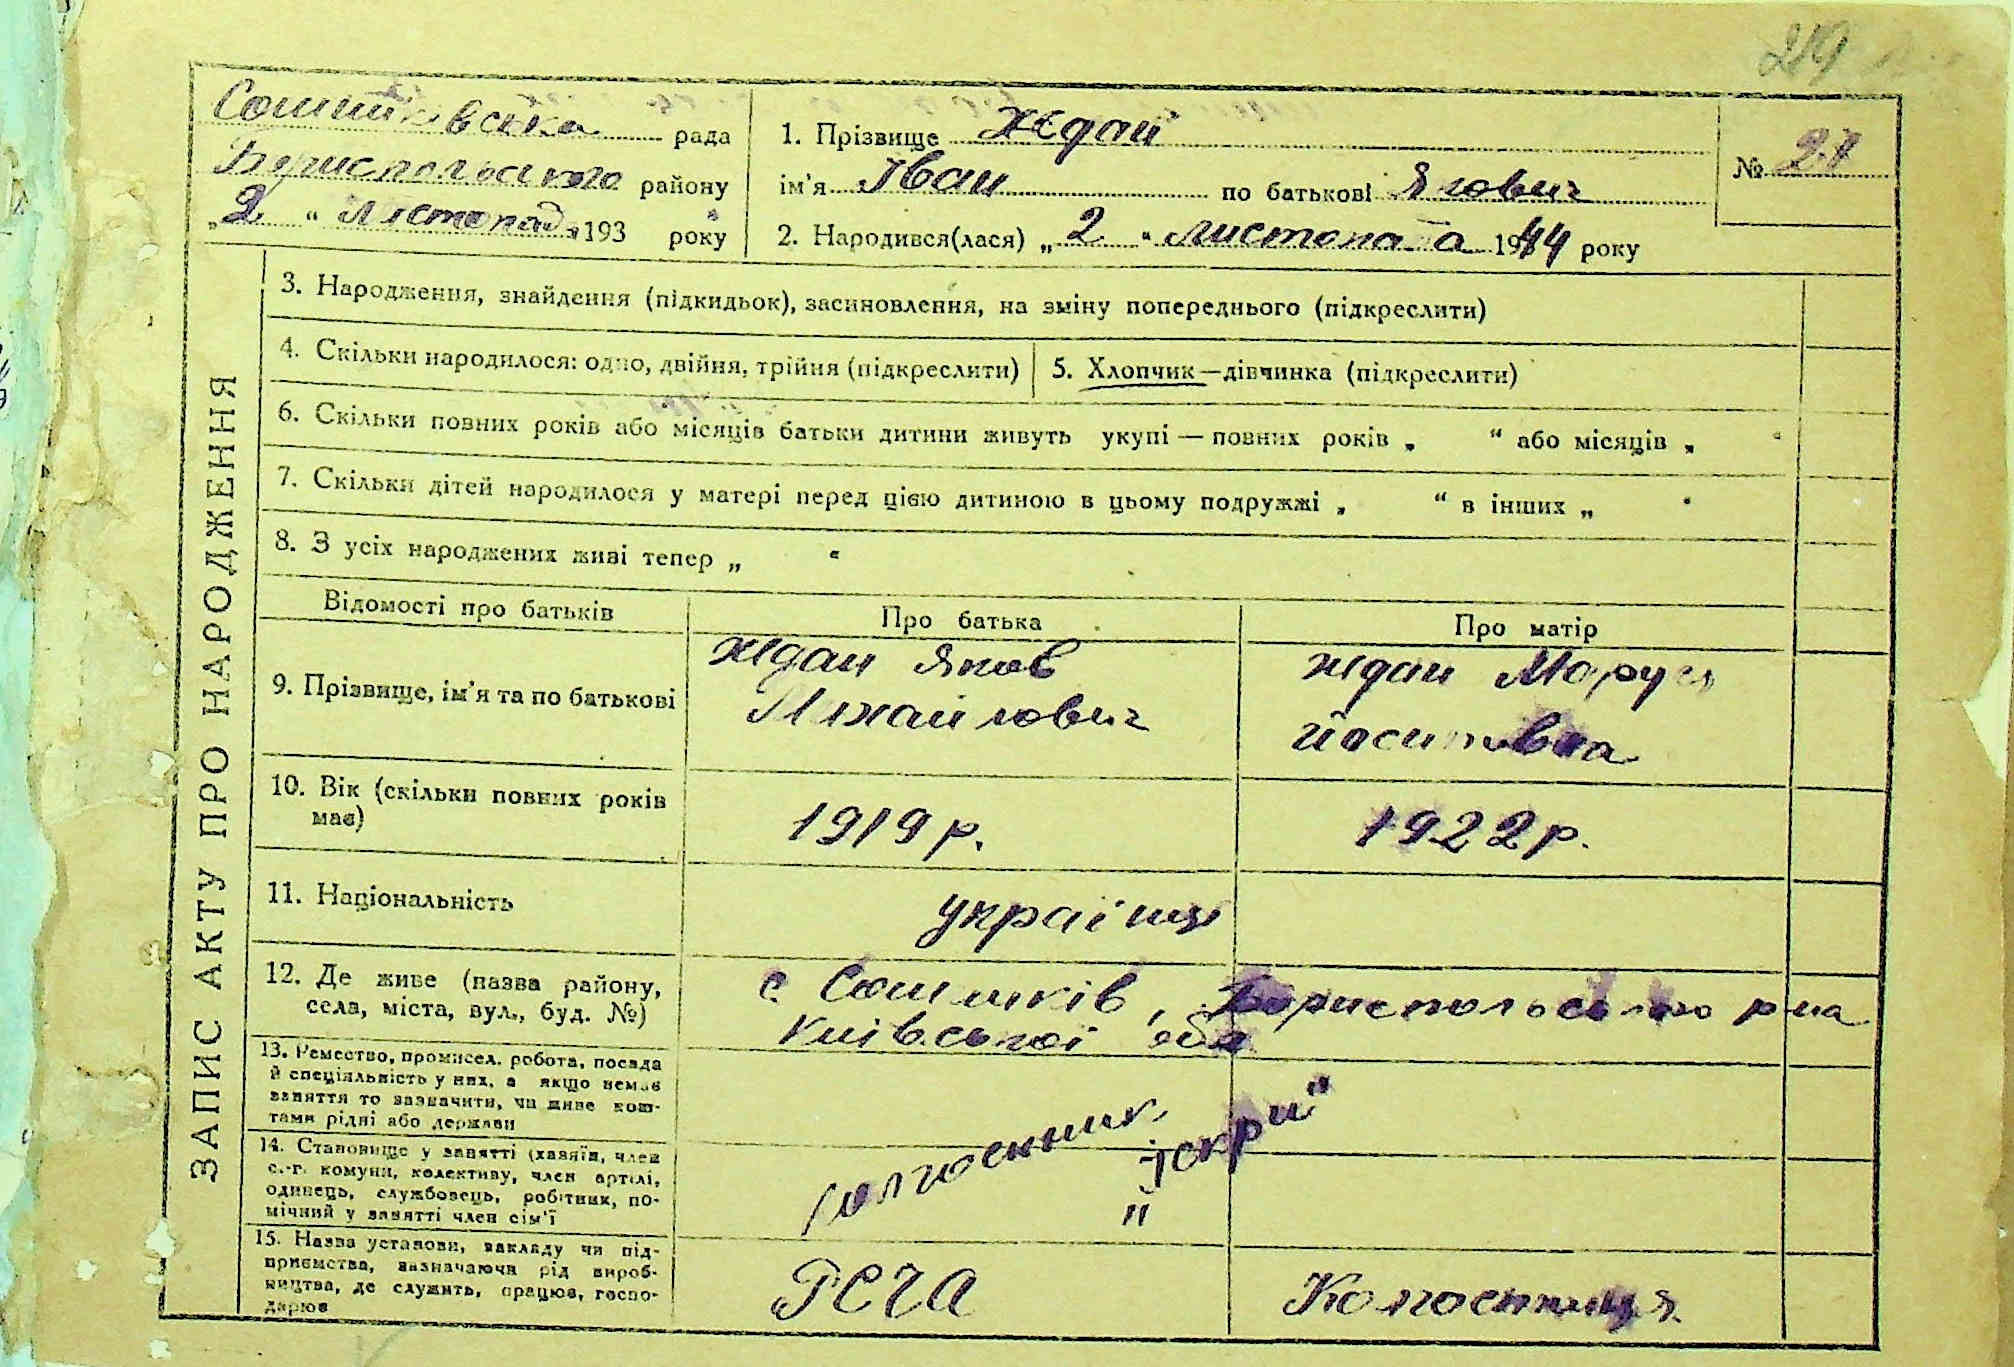 219
Сошниківська рада
Бориспольського району
„2“ Листопада 193 року
1. Прізвище Ждан
ім'я Іван по батькові Якович
2. Народився(лася) „2“ листопада 1944 року
№ 21
ЗАПИС АКТУ ПРО НАРОДЖЕННЯ
3. Народження, знайдення (підкидьок), засиновлення, на зміну попереднього (підкреслити)
4. Скільки народилося: одно, двійня, трійня (підкреслити)
5. Хлопчик—дівчинка (підкреслити)
6. Скільки повних років або місяців батьки дитини живуть укупі — повних років „ “ або місяців „ “
7. Скільки дітей народилося у матері перед цією дитиною в цьому подружжі „ “ в інших „ “
8. З усіх народжених живі тепер „ “
Відомості про батьків
Про батька
Про матір
9. Прізвище, ім'я та по батькові
Ждан Яков
Михайлович
Ждан Маруся
Йосиповна
10. Вік (скільки повних років
має)
1919 р.
1922 р.
11. Національність
українці
12. Де живе (назва району,
села, міста, вул., буд. №)
с. Сошників, Бориспольского р-на
Київської обл
13. Ремество, промисел. робота, посада
й спеціяльність у них, а якщо немає
заняття то зазначити, чи живе кош-
тами рідні або держави
14. Становище у занятті (хазяїн, член
с.-г. комуни, колективу, член артілі,
одинець, службовець, робітник, по-
мічний у занятті член сім'ї
колгоспник
„Іскри“
15. Назва установи, закладу чи під-
приємства, зазначаючи рід вироб-
ництва, де служить, працює, госпо-
дарює
РСЧА
Колгоспниця